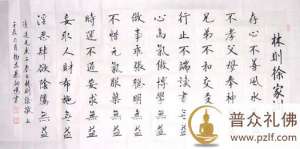 林則徐家
存心不善風水
不孝父母奉神
兄弟不和交友
行止不端讀書無益
心高氣傲博學無益
做事乖張聰明無益
不惜元氣服藥無益
時運不通妄求無益
妄取人財布施無益
淫惡肆欲陰騭無益
普众礼佛
www.pzlf.com